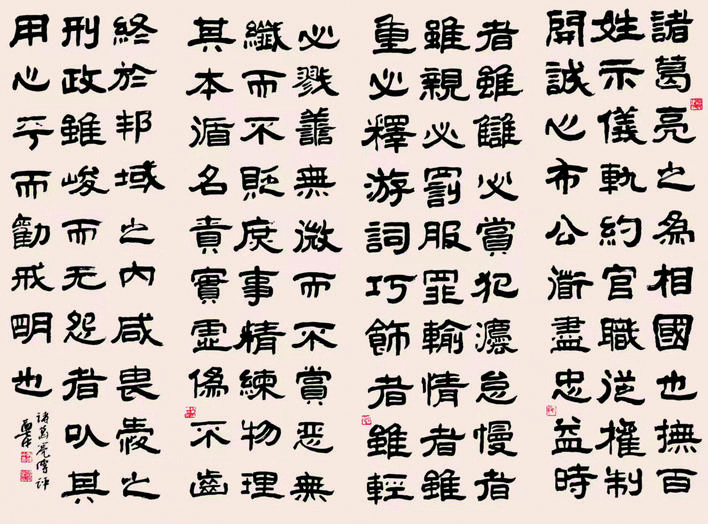 諸葛亮之為相國也撫百
姓示儀軌約官職從權制
開誠心布公衜盡忠益時
者雖讎必賞犯灋怠慢者
雖親必罰服罪輸情者雖
重必釋游詞巧飾者雖輕
必戮善無微而不賞惡無
纖而不貶庶事精練物理
其本循名責實虛偽不齒
終於邦域之内咸畏愛之
刑政雖峻而无怨者以其
用心平而勸戒明也
諸葛亮傳評